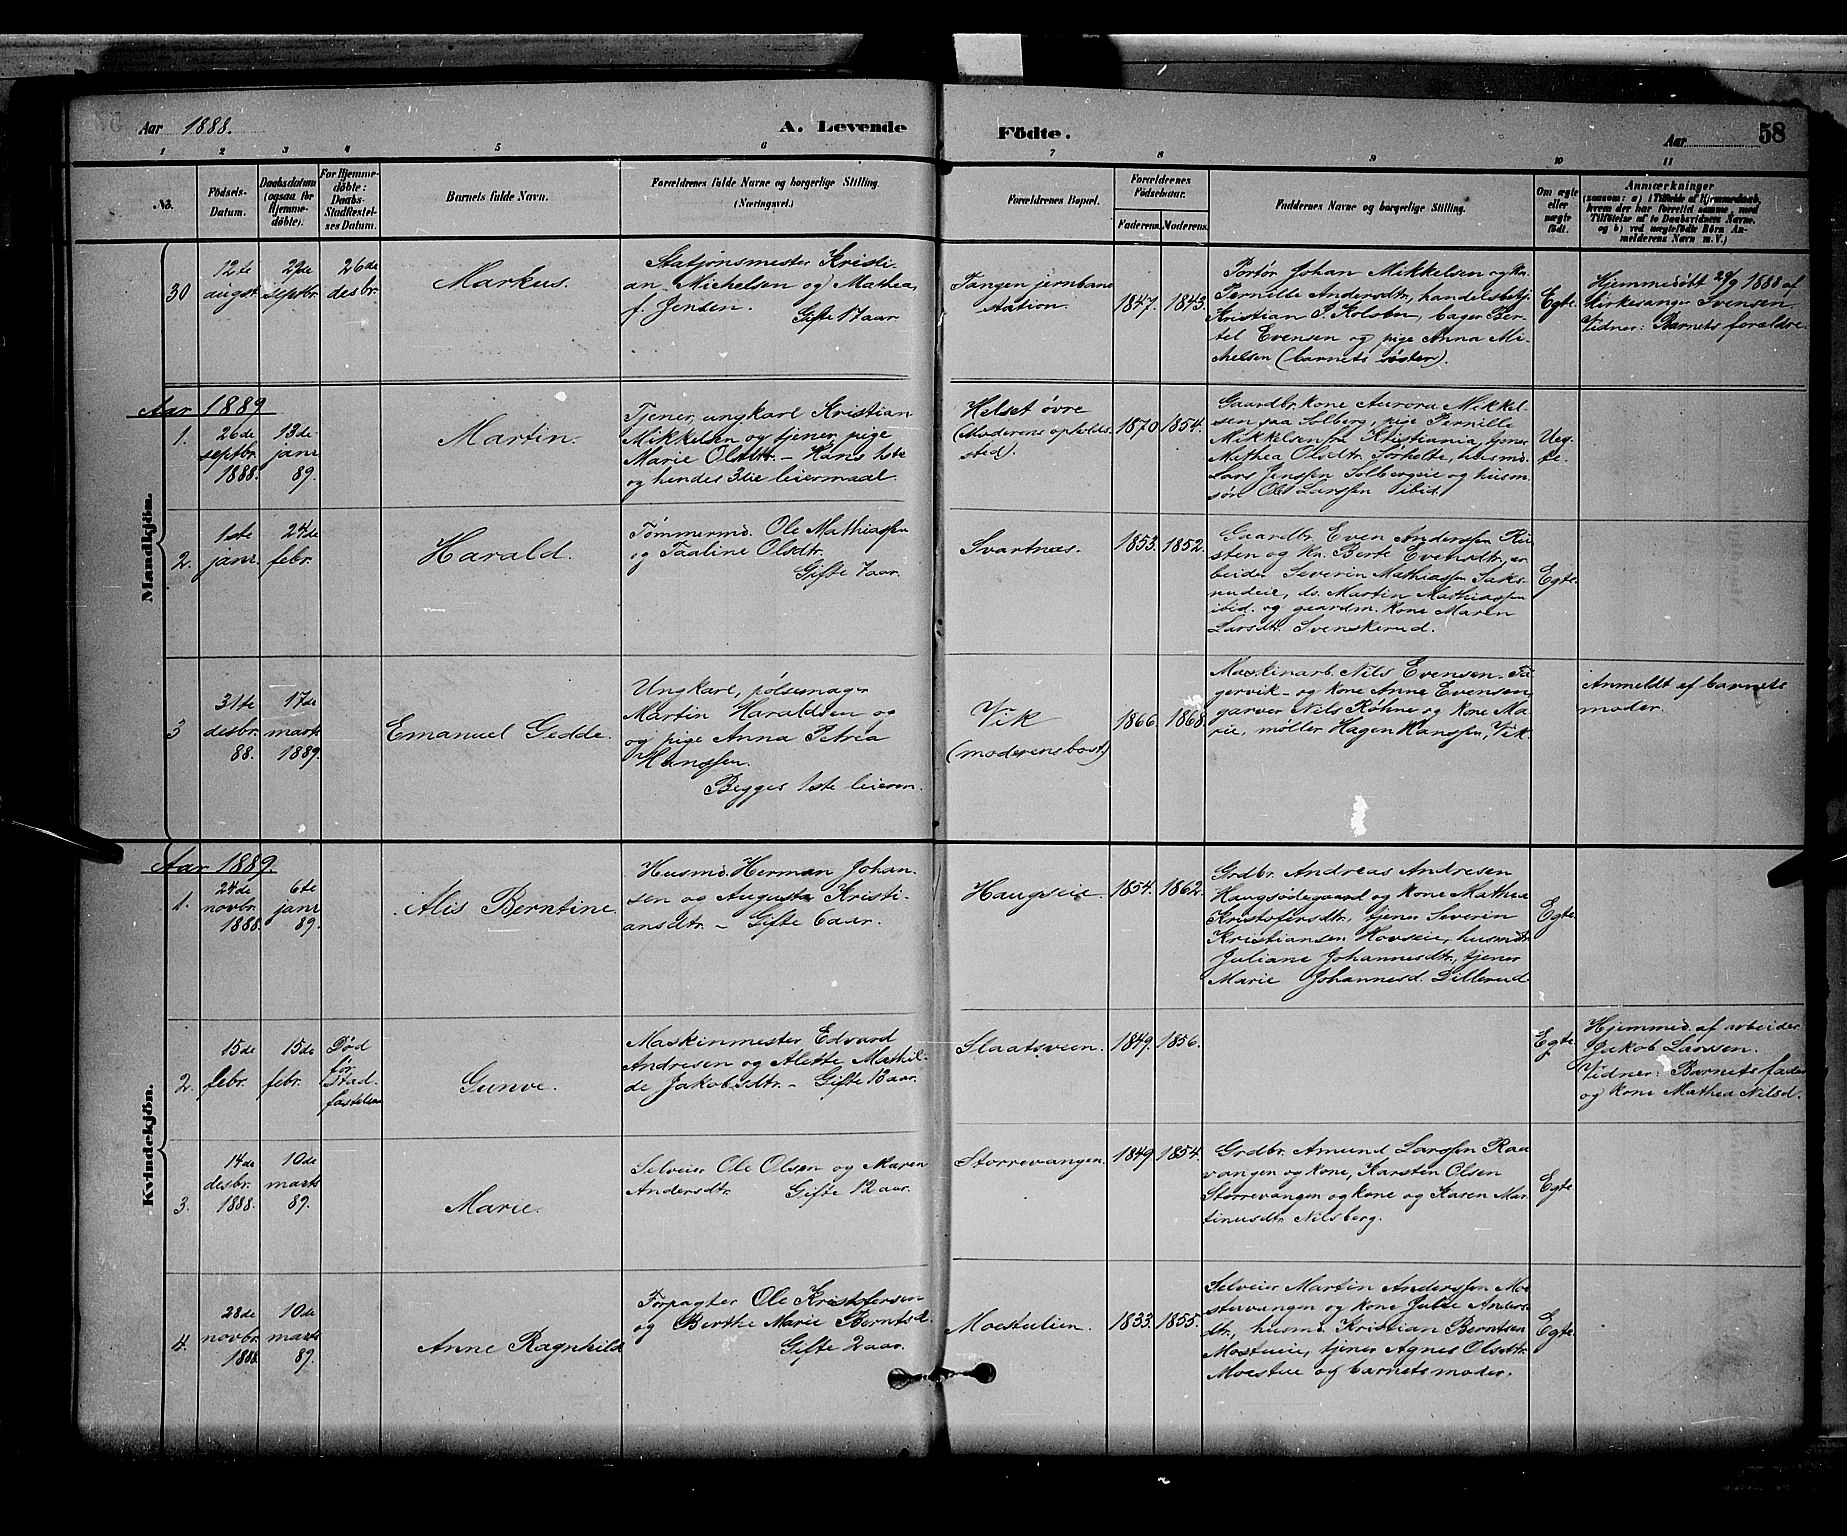 Aar 1888.
A. Levende Födte.
Aar 58
1 2 3 4 5 6 7 8 9 10 11
No.
Födsels-
Datum.
Daabsdatum
(ogsaa for
Hjemme-
døbte).
For Hjemme-
døbte:
Daabs-
Stadfæstel-
ses Datum.
Barnets fulde Navn.
Forældrenes fulde Navne og borgerlige Stilling.
(Næringsvei.)
Forældrenes Bopæl.
Forældrenes
Födselsaar.
Faderens. Moderens.
Faddernes Navne og borgerlige Stilling.
Om ægte
eller
uægte
født.
Anmærkninger
(saasom: a) i Tilfælde af Hjemmedaab,
hvem der har forrettet samme, med
Tilföielse af to Daabsvidners Navne,
og b) ved uægtefødte Börn An-
melderens Navn m. V.)
Mandkjön.
30
12te
augst.
29de
septbr.
26de
desbr.
Markus.
Statjonsmester Kristi-
an Michelsen og Mathea
f. Jensen.
Gifte 17 aar
Tangen jernbane
station.
1847. 1843.
Portør Johan Mikkelsen og kn.
Pernille Andersdtr, handelsbetj.
Kristian P. Kolsbu, bager Ber-
tel Evensen og pige Anna Mi-
chelsen (barnets søster).
Egte
Hjemmedøbt 29/9 1888 af
Kirkesanger Svensen.
Vidner: Barnets forældre.
Aar 1889
1.
26de
septbr.
1888.
13de
janr
89.
Martin.
Tjener, ungkarl Kristian
Mikkelsen og tjener, pige
Marie Olsdtr. – Hans 1ste
og hendes 3die leiermaal.
Helset øvre
(Moderens opholds
sted).
1870 1854.
Gaardbr. kone Aurora Mikkel-
sen paa Solberg, pige Pernille
Mikkelsen fra Kristiania, tjener
Mathea Olsdtr. Sorholte, husmd.
Lars Jenssen Solbergeie og husm.
søn Ole Larssen ibid.
Ueg-
te.
2.
1ste
janr.
24de
febr.
Harald.
Tømmermd. Ole Mathiassen
og Paaline Olsdtr.
Gifte 7 aar.
Svartnæs.
1853. 1852.
Gaardbr. Even Anderssen
og kn. Berte Evensdtr, ar-
beider Severin Mathiassen Saks-
rudeie, do. Martin Mathiassen
ibid. og gaardm. kone Maren
Larsdtr. Svenskerud.
Egte.
3
31te
desbr.
88.
17de
marts
1889.
Emanuel Gedde.
Ungkarl, pølsemager
Martin Haraldsen og
og pige Anna Petrea
Hanssen.
Begges 1ste leierm.
Vik
(moderens bost.)
1866. 1868.
Maskinarb. Nils Evensen Fa-
gervik og kone Anne Evensen,
garver Nils Røhne og kone Ma-
rie, møller Hagen Hanssen, Vik.
Anmeldt af barnets
moder.
Kvindekjön.
Aar 1889.
1.
24de
novbr.
1888.
6te
janr
89.
Alis Berntine.
Husmd. Herman Johan-
sen og Augusta Kristi-
ansdtr. – Gifte 6 aar.
Haugseie
1854. 1862.
Grdbr. Andreas Andresen
Haugsødegaard og kone Mathea
Kristofersdtr., tjener Severin
Kristiansen Hovseie, husmdtr.
Juliane Johannesdtr., tjener
Marie Johannesd. Dillerud
Egte.
2.
15de
febr.
15de
febr.
Død
før
stad-
fæstelsen
Gunve.
Maskinmester Edvard
Andresen og Alette Mathil-
de Jakobsdtr. – Gifte 12 aar.
Slaatsveen.
1849. 1856.
Egte.
Hjemmed. af arbeider
Jakob Larssen.
Vidner: Barnets fader
og kone Mathea Nilsd.
3.
14de
desbr.
1888.
10de
marts
89.
Marie.
Selveier Ole Olsen og Maren
Andersdtr. Gifte 12 aar.
Storrevangen.
1849 1854.
Grdbr. Amund Larssen Raa-
vangen og kone, Karsten Olsen
Storrevangen og kone og Karen Mar-
tinusdtr. Nilsberg.
Egte.
4.
28de
novbr.
1888.
10de
marts
89.
Anne Ragnhild
Forpagter Ole Kristofersen
og Berthe Marie Berntsd.
Gifte 2 aar.
Moestulien.
1833. 1855.
Selveier Martin Anderssen Mo-
stuvangen og kone Julie Anders-
dtr., husmd. Kristian Berntsen
Mostueie, tjener Agnes Olsdtr.
Moestue og barnets moder.
Egte.